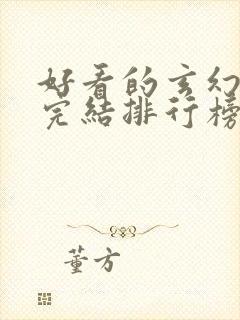 好看的玄幻
完结排行榜
董方